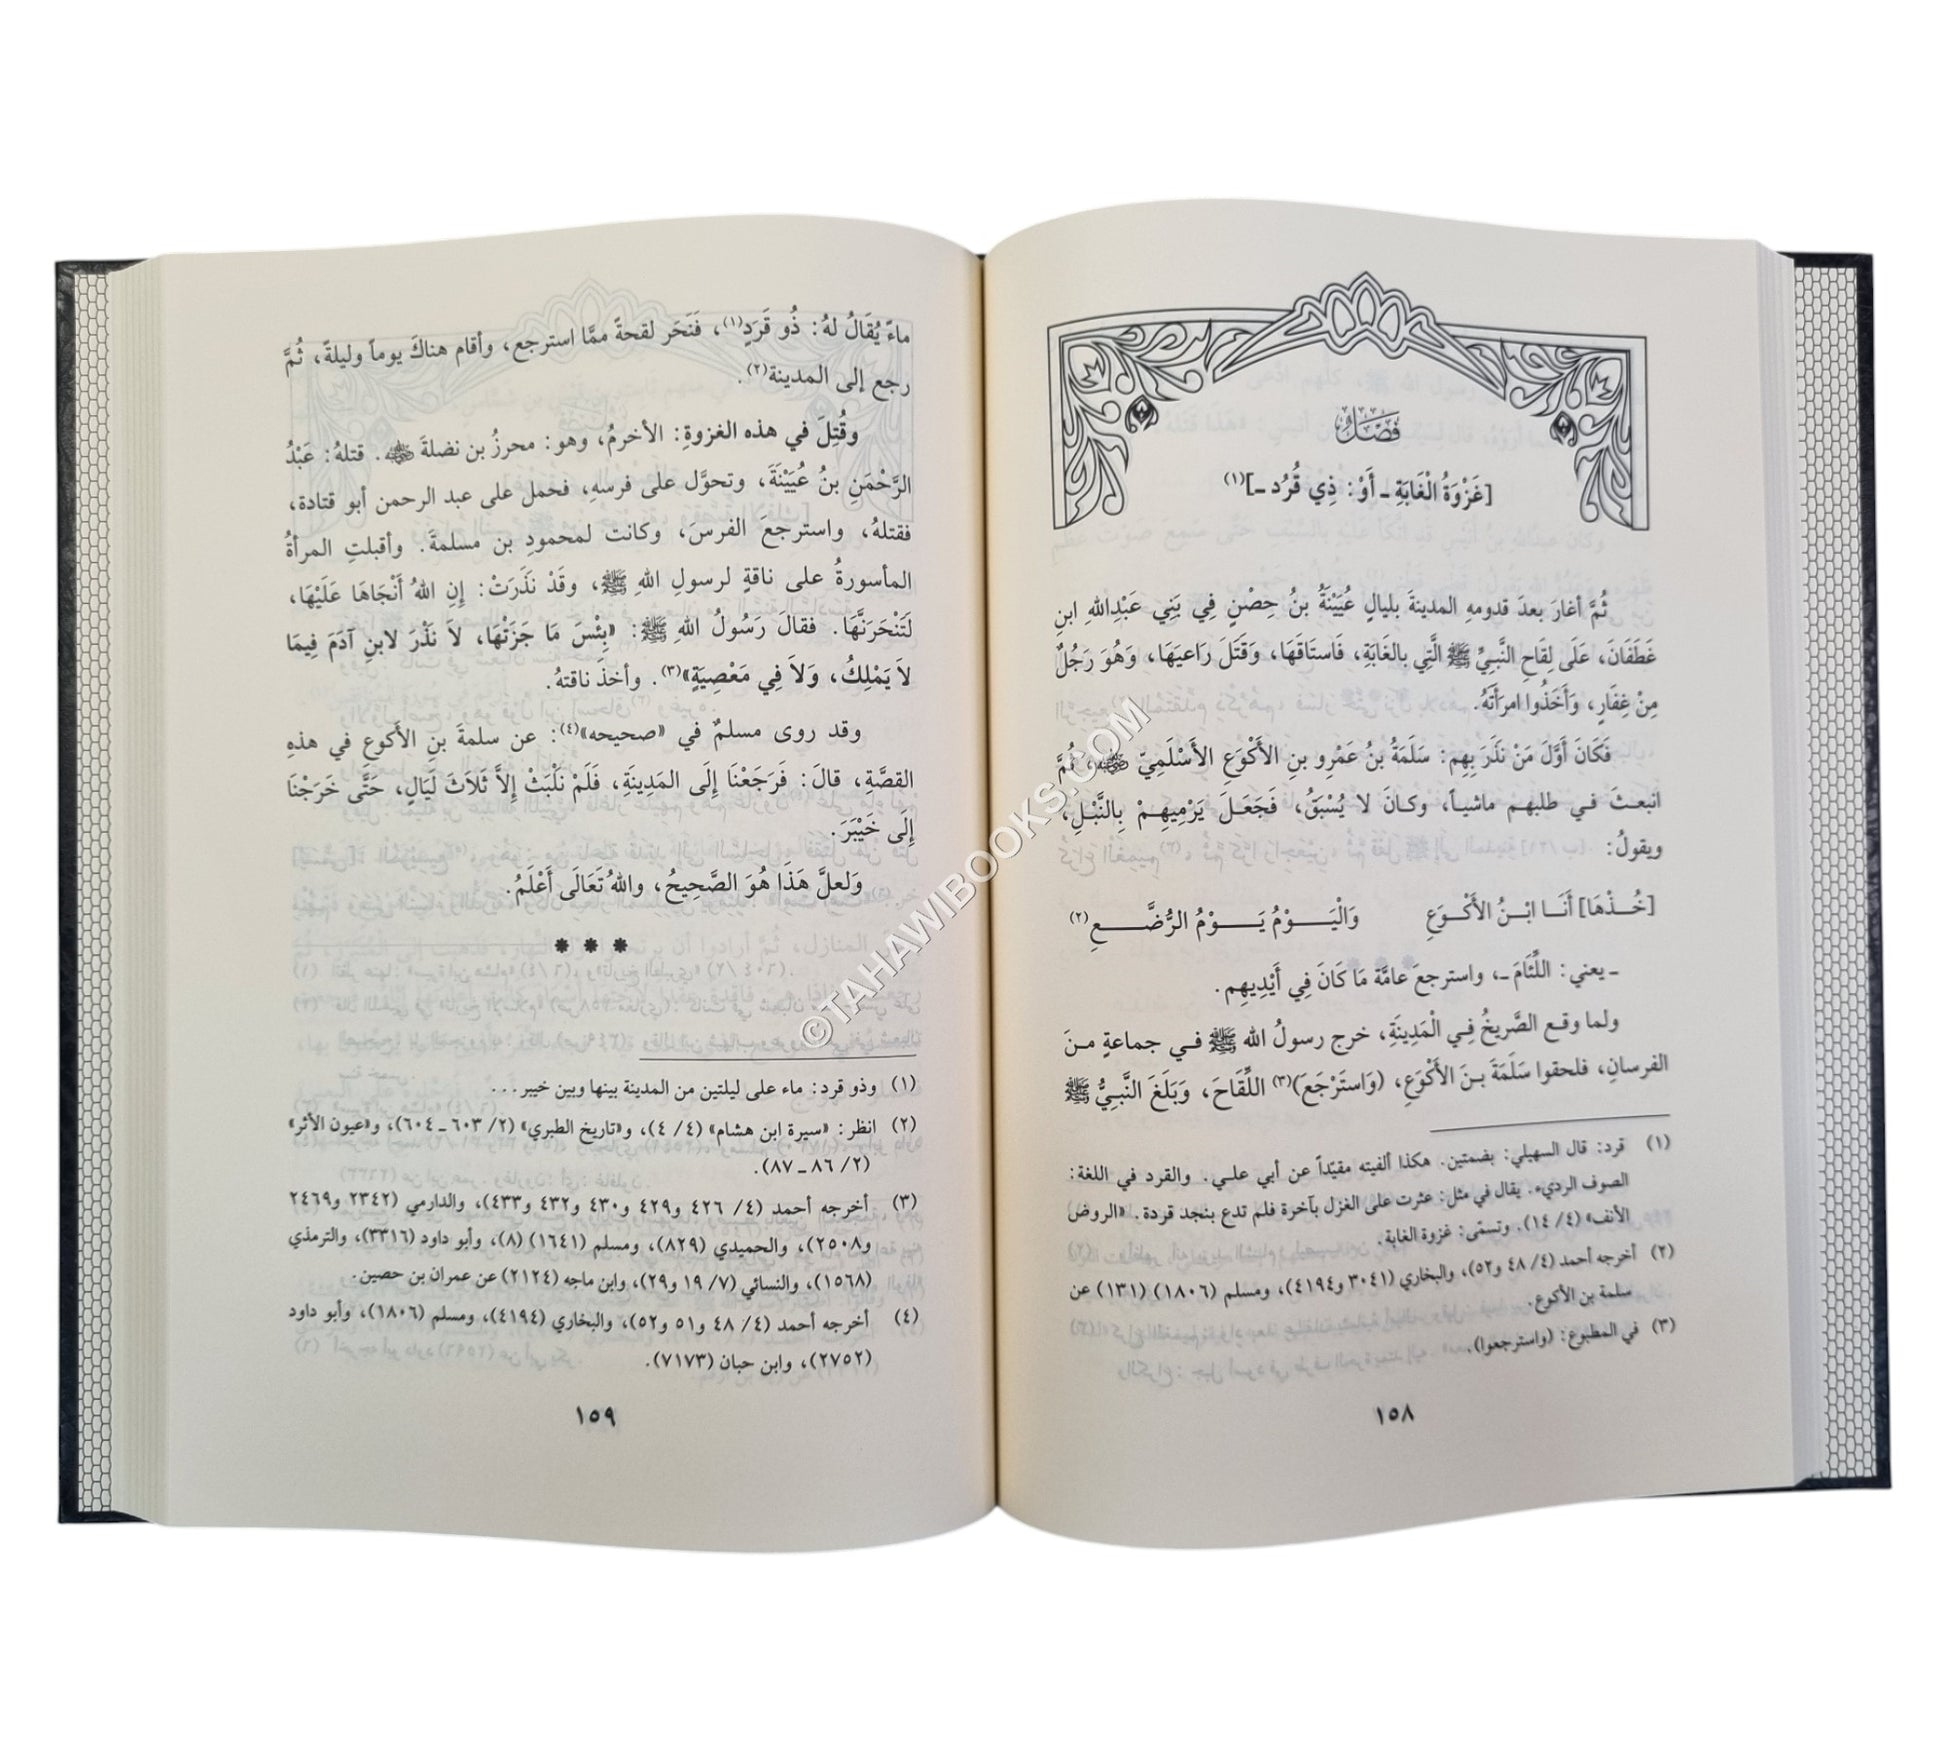 فَصْلٌ
[غَزْوَةُ الْغَابَةِ ـ أَوْ: ذِي قُرُد ـ](١)
ثُمَّ أغار بعدَ قدومهِ المدينةَ بليالٍ عُيَيْنَةُ بنُ حِصْنٍ فِي بَنِي عَبْدِاللهِ ابنِ
غَطَفَانَ، عَلَى لِقَاحِ النَّبِيِّ ﷺ الَّتِي بالغَابَةِ، فَاستَاقَهَا، وَقَتَلَ رَاعيَهَا، وَهُوَ رَجُلٌ
مِنْ غِفَارٍ، وَأَخَذُوا امرَأَتَهُ.
فَكَانَ أوَّلَ مَنْ نَذَرَ بِهِم: سَلَمَةُ بنُ عَمْرِو بنِ الأَكْوَعِ الأَسْلَمِيّ ﷺ، ثُمَّ
انبعثَ في طلبهم ماشياً، وكانَ لا يُسْبَقُ، فَجَعَلَ يَرْمِيهِمْ بِالنَّبْلِ،
ويقولُ:
[خُـذْهَا] أَنَـا ابْـنُ الأَكْـوَعِ وَالْيَـوْمُ يَـوْمُ الرُّضَّـعِ(٢)
ـ يعني: اللِّئَامَ ـ، واسترجعَ عامَّة مَا كَانَ فِي أَيْدِيهِم.
ولما وقع الصَّرِيخُ فِي الْمَدِينَةِ، خرج رسولُ الله ﷺ في جماعةٍ منَ
الفرسانِ، فلحقوا سَلَمَةَ بنَ الأَكْوَعِ، (وَاستَرْجَعَ)(٣) اللِّقَاحَ، وَبَلَغَ النَّبِيُّ ﷺ
(١) قرد: قال السهيلي: بضمتين. هكذا ألفيته مقيّداً عن أبي علي. والقرد في اللغة:
الصوف الرديء. يقال في مثل: عثرت على الغزل بآخرة فلم تدع بنجد قردة. «الروض
الأنف» (٤/ ١٤). وتسمّى: غزوة الغابة.
(٢) أخرجه أحمد (٤/ ٤٨ و٥٢)، والبخاري (٣٠٤١ و٤١٩٤)، ومسلم (١٨٠٦) (١٣١) عن
سلمة بن الأكوع.
(٣) في المطبوع: (واسترجعوا).
١٥٨
ماءً يُقَالُ لهُ: ذُو قَرَدٍ(١)، فَنَحَر لقحةً ممَّا استرجع، وأقام هناكَ يوماً وليلةً، ثُمَّ
رجع إلى المدينة(٢).
وقُتِلَ في هذه الغزوةِ: الأخرمُ، وهو: محرزُ بن نضلةَ ﷺ. قتلهُ: عَبْدُ
الرَّحْمَنِ بنُ عُيَيْنَةَ، وتحوَّل على فرسهِ، فحمل على عبد الرحمن أبو قتادة،
فقتلهُ، واسترجعَ الفرسَ، وكانت لمحمودِ بن مسلمةَ. وأقبلتِ المرأةُ
المأسورةُ على ناقةٍ لرسولِ اللهِ ﷺ، وقَدْ نَذَرَتْ: إنِ اللهُ أَنْجَاهَا عَلَيْهَا،
لَتَنْحَرَنَّهَا. فقالَ رَسُولُ اللهِ ﷺ: «بِئْسَ مَا جَزَتْهَا، لاَ نَذْرَ لابنِ آدَمَ فِيمَا
لاَ يَمْلِكُ، وَلاَ فِي مَعْصِيَةٍ»(٣). وأخذَ ناقتهُ.
وقد روى مسلمٌ في «صحيحه»(٤): عن سلمةَ بنِ الأكوعِ في هذهِ
القصَّةِ، قالَ: فَرَجَعْنَا إِلَى المَدِينَةِ، فَلَمْ نَلْبَثْ إِلاَّ ثَلاَثَ لَيَالٍ، حَتَّى خَرَجْنَا
إِلَى خَيْبَرَ.
وَلعلَّ هَذَا هُوَ الصَّحِيحُ، واللهُ تَعَالَى أَعْلَمُ.
* * *
(١) وذو قرد: ماء على ليلتين من المدينة بينها وبين خيبر...
(٢) انظر: «سيرة ابن هشام» (٤/ ٤)، و«تاريخ الطبري» (٢/ ٦٠٣ ـ ٦٠٤)، و«عيون الأثر»
(٢/ ٨٦ ـ ٨٧).
(٣) أخرجه أحمد (٤/ ٤٢٦ و٤٢٩ و٤٣٠ و٤٣٢ و٤٣٣)، والدارمي (٢٣٤٢ و٢٤٦٩
و٢٥٠٨)، والحميدي (٨٢٩)، ومسلم (١٦٤١) (٨)، وأبو داود (٣٣١٦)، والترمذي
(١٥٦٨)، والنسائي (٧/ ١٩ و٢٩)، وابن ماجه (٢١٢٤) عن عمران بن حصين.
(٤) أخرجه أحمد (٤/ ٤٨ و٥١ و٥٢)، والبخاري (٤١٩٤)، ومسلم (١٨٠٦)، وأبو داود
(٢٧٥٢)، وابن حبان (٧١٧٣).
١٥٩
©TAHAWIBOOKS.COM